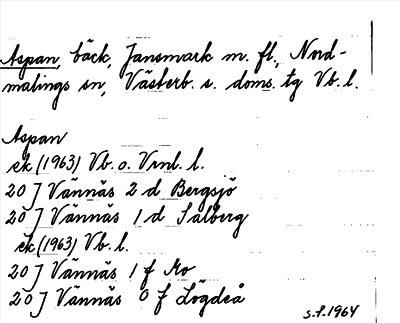 Aspan, bäck, Jansmark m. fl., Nord-
malings sn, Västerb. s. doms. tg Vb. l.
Aspan
ek (1963) Vb. o. Vrnl. l.
20 J Vännäs 2 d Bergsjö
20 J Vännäs 1 d Salberg
ek (1963) Vb. l.
20 J Vännäs 1 f Mo
20 J Vännäs 0 f Lögdeå
s.f. 1964